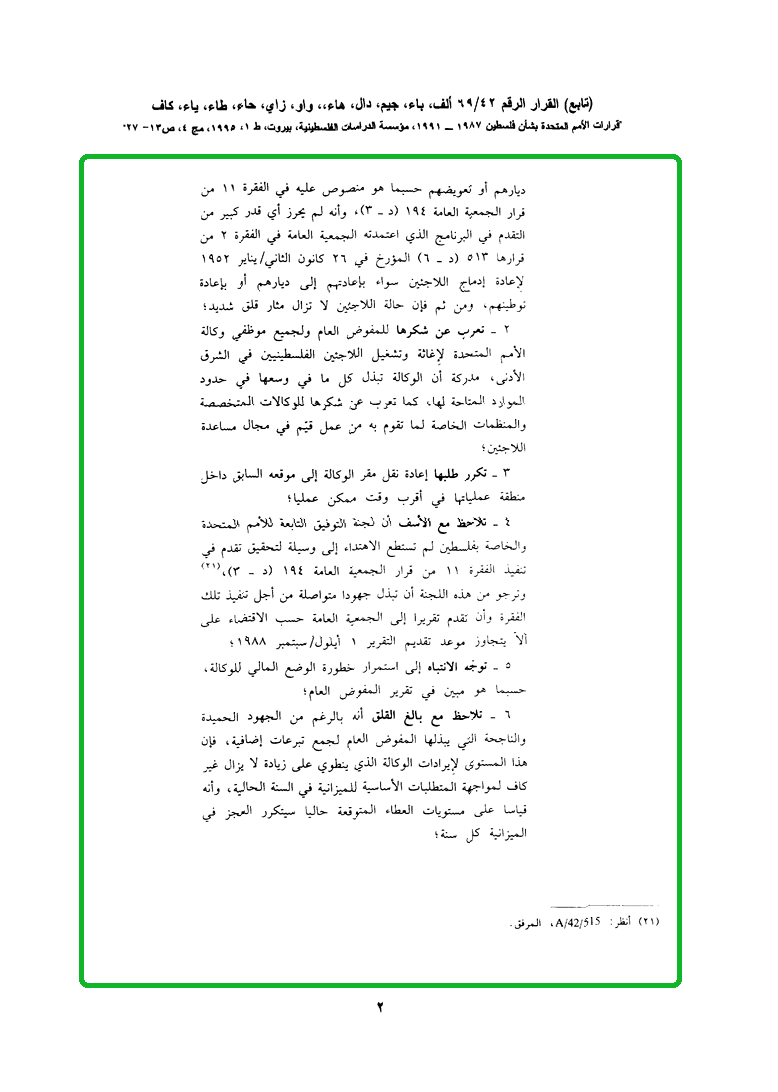 (تابع) القرار الرقم ٦٩/٤٢ ألف، باء، جيم، دال، هاء،، واو، زاي، حاء، طاء، ياء، كاف
"قرارات الأمم المتحدة بشأن فلسطين ١٩٨٧ ــ ١٩٩١، مؤسسة الدراسات الفلسطينية، بيروت، ط ١، ١٩٩٥، مج ٤، ص١٣- ٢٧"
ديارهم أو تعويضهم حسبما هو منصوص عليه في الفقرة ١١ من
قرار الجمعية العامة ١٩٤ (د ـ ٣)، وأنه لم يحرز أي قدر كبير من
التقدم في البرنامج الذي اعتمدته الجمعية العامة في الفقرة ٢ من
قرارها ٥١٣ (د ـ ٦) المؤرخ في ٢٦ كانون الثاني/يناير ١٩٥٢
لإعادة إدماج اللاجئين سواء بإعادتهم إلى ديارهم أو بإعادة
توطينهم، ومن ثم فإن حالة اللاجئين لا تزال مثار قلق شديد؛
٢ ـ تعرب عن شكرها للمفوض العام ولجميع موظفي وكالة
الأمم المتحدة لإغاثة وتشغيل اللاجئين الفلسطينيين في الشرق
الأدنى، مدركة أن الوكالة تبذل كل ما في وسعها في حدود
الموارد المتاحة لها، كما تعرب عن شكرها للوكالات المتخصصة
والمنظمات الخاصة لما تقوم به من عمل قيّم في مجال مساعدة
اللاجئين؛
٣ ـ تكرر طلبها إعادة نقل مقر الوكالة إلى موقعه السابق داخل
منطقة عملياتها في أقرب وقت ممكن عمليا؛
٤ ـ تلاحظ مع الأسف أن لجنة التوفيق التابعة للأمم المتحدة
والخاصة بفلسطين لم تستطع الاهتداء إلى وسيلة لتحقيق تقدم في
تنفيذ الفقرة ١١ من قرار الجمعية العامة ١٩٤ (د ـ ٣)،(٢١)
وترجو من هذه اللجنة أن تبذل جهودا متواصلة من أجل تنفيذ تلك
الفقرة وأن تقدم تقريرا إلى الجمعية العامة حسب الاقتضاء على
ألا يتجاوز موعد تقديم التقرير ١ أيلول/سبتمبر ١٩٨٨؛
٥ ـ توجّه الانتباه إلى استمرار خطورة الوضع المالي للوكالة،
حسبما هو مبين في تقرير المفوض العام؛
٦ ـ تلاحظ مع بالغ القلق أنه بالرغم من الجهود الحميدة
والناجحة التي يبذلها المفوض العام لجمع تبرعات إضافية، فإن
هذا المستوى لإيرادات الوكالة الذي ينطوي على زيادة لا يزال غير
كاف لمواجهة المتطلبات الأساسية للميزانية في السنة الحالية، وأنه
قياسا على مستويات العطاء المتوقعة حاليا سيتكرر العجز في
الميزانية كل سنة؛
(٢١) أنظر: A/42/515، المرفق.
٢